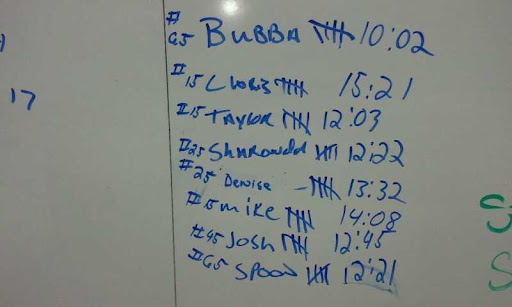 17
#65 BUBBA 10:02
#15 CHRIS 15:21
#15 TAYLOR 12:03
#25 SHARONDA 12:22
#25 Denise - 13:32
#5 mike 14:08
#45 Josh 12:45
#65 SPOON 12:21